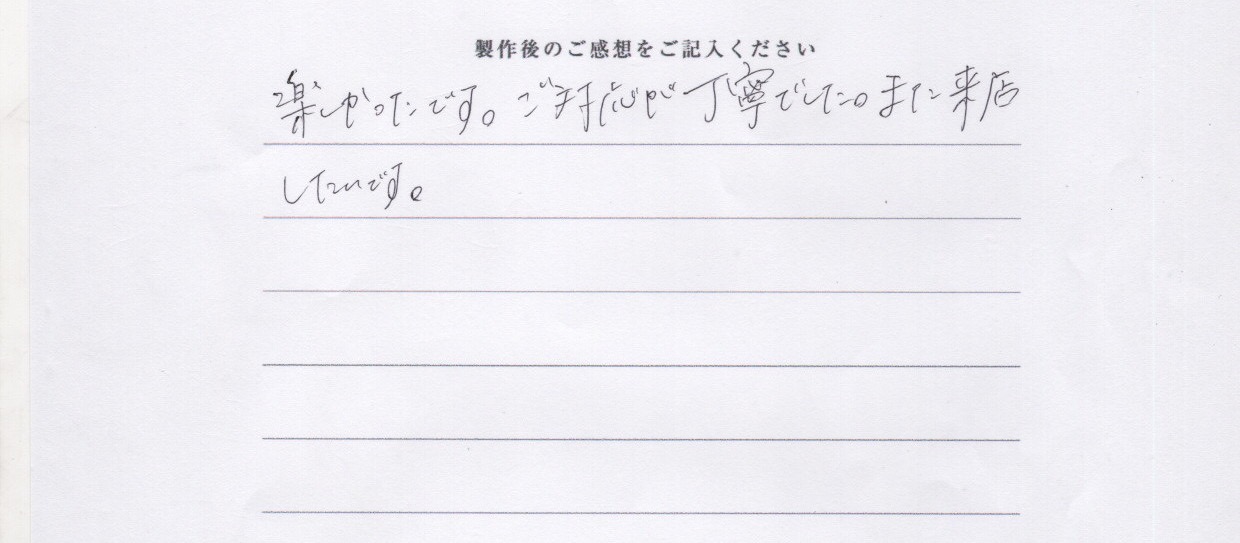 製作後のご感想をご記入ください
楽しかったです。ご対応が丁寧でした。また来店
したいです。